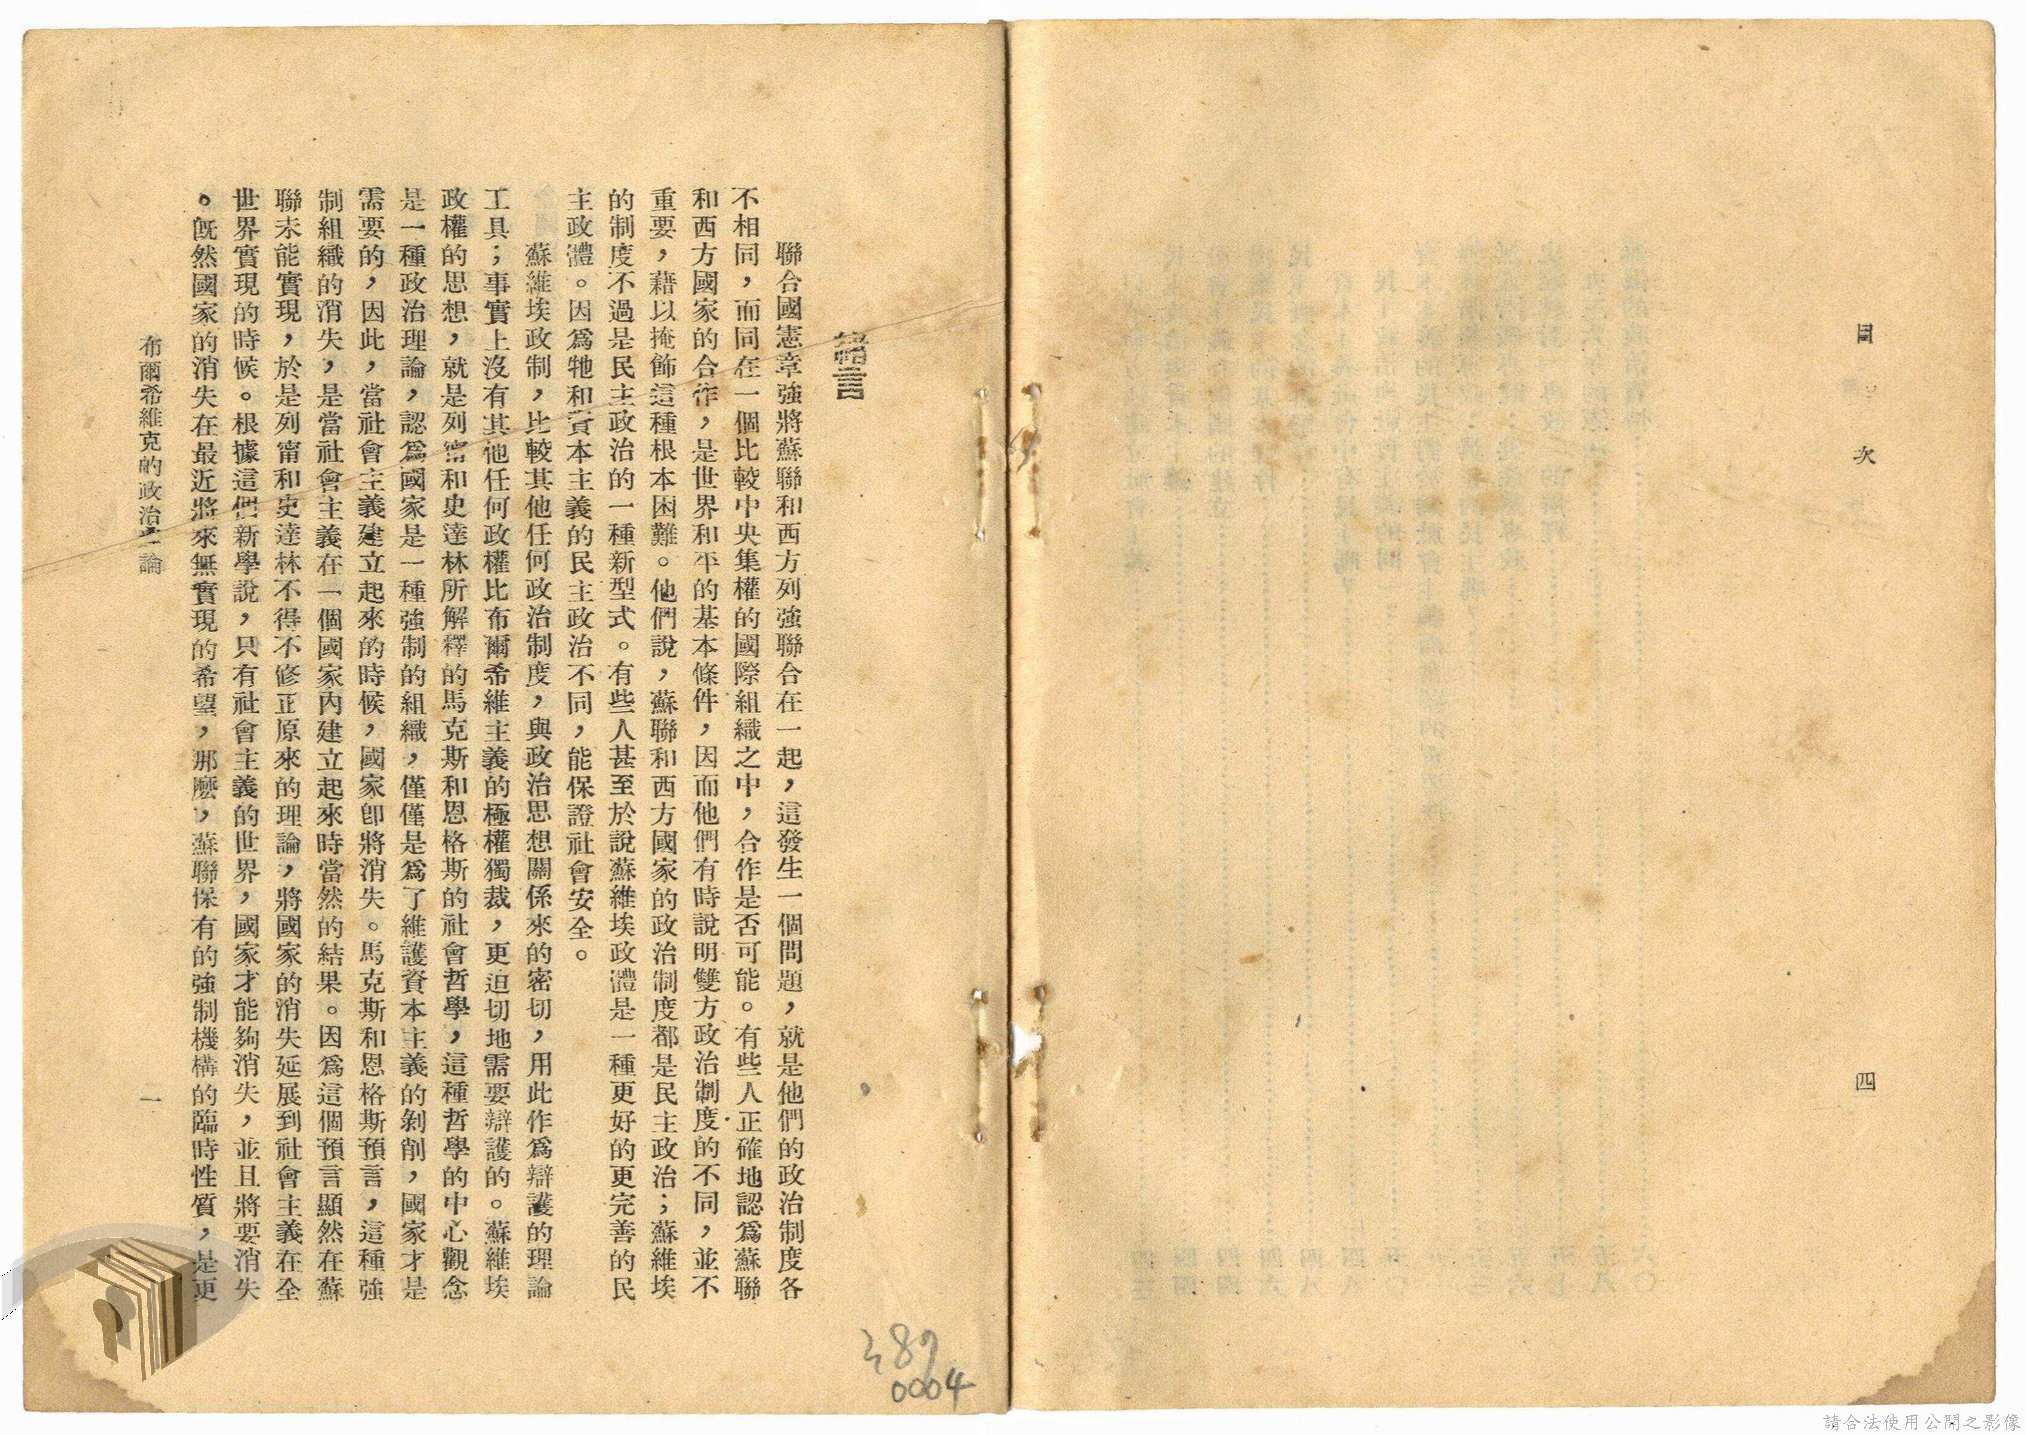 目次
四
緒言
聯合國憲章強將蘇聯和西方列強聯合在一起，這發生一個問題，就是他們的政治制度各
不相同，而同在一個比較中央集權的國際組織之中，合作是否可能。有些人正確地認爲蘇聯
和西方國家的合作，是世界和平的基本條件，因而他們有時說明雙方政治制度的不同，並不
重要，藉以掩飾這種根本困難。他們說，蘇聯和西方國家的政治制度都是民主政治；蘇維埃
的制度不過是民主政治的一種新型式。有些人甚至於說蘇維埃政體是一種更好的更完善的民
主政體。因爲牠和資本主義的民主政治不同，能保證社會安全。
蘇維埃政制，比較其他任何政治制度，與政治思想關係來的密切，用此作爲辯護的理論
工具；事實上沒有其他任何政權比布爾希維主義的極權獨裁，更迫切地需要辯護的。蘇維埃
政權的思想，就是列甯和史達林所解釋的馬克斯和恩格斯的社會哲學，這種哲學的中心觀念
是一種政治理論，認爲國家是一種強制的組織，僅僅是爲了維護資本主義的剝削，國家才是
需要的，因此，當社會主義建立起來的時候，國家卽將消失。馬克斯和恩格斯預言，這種強
制組織的消失，是當社會主義在一個國家內建立起來時當然的結果。因爲這個預言顯然在蘇
聯未能實現，於是列甯和史達林不得不修正原來的理論，將國家的消失延展到社會主義在全
世界實現的時候。根據這們新學說，只有社會主義的世界，國家才能夠消失，並且將要消失
。旣然國家的消失在最近將來無實現的希望，那麼，蘇聯保有的強制機構的臨時性質，是更
布爾希維克的政治理論
一
389
0004
請合法使用公開之影像